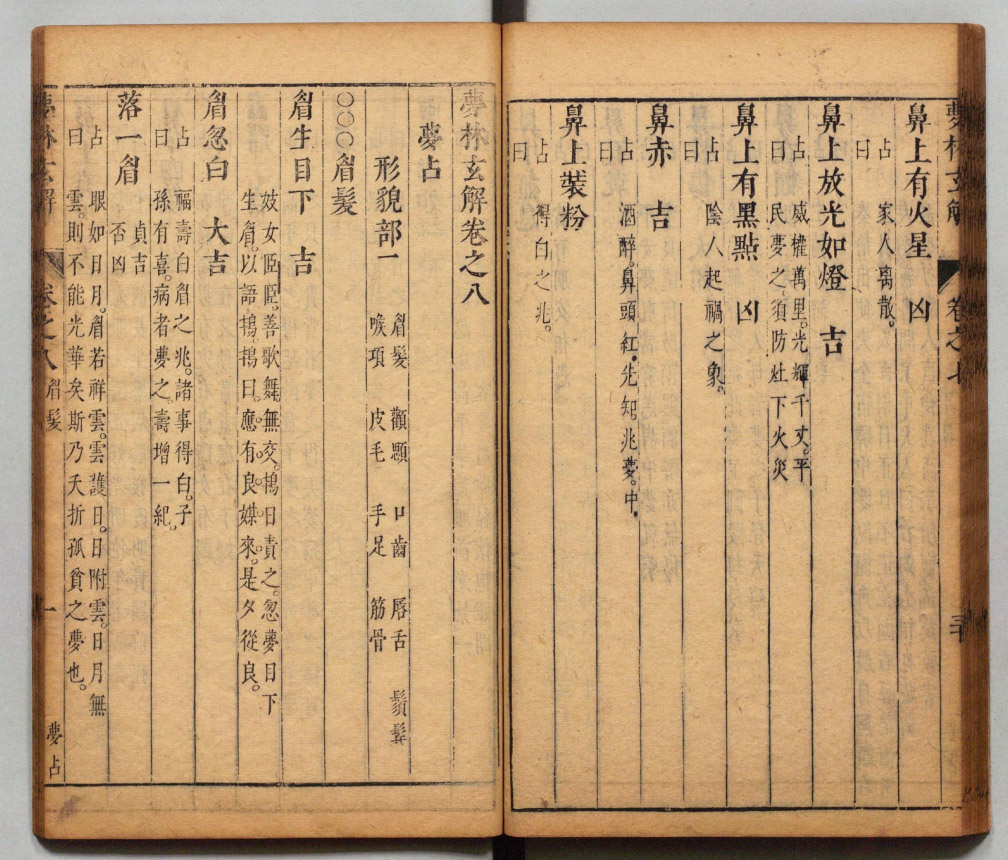 鼻上有火星　凶
占曰　家人离散。
鼻上放光如燈　吉
占曰　威權萬里。光輝千丈。平
民夢之。須防灶下火災
鼻上有黑點　凶
占曰　陰人起禍之象。
鼻赤　吉
占曰　酒醉。鼻頭紅。先知兆夢。中。
鼻上裝粉
占曰　得白之兆。
夢林玄解　卷之七
夢林玄解卷之八
夢占
形貌部一
眉髮　顴顋　口齒　唇舌　鬚髯
喉項　皮毛　手足　筋骨
○○○眉髮
眉生目下　吉
妓女臣臣。善歌舞。無交。鴇日責之。忽夢目下
生眉。以語鴇。鴇曰。應有良媒來。是夕從良。
眉忽白　大吉
占曰　福壽白眉之兆。諸事得白。子
孫有喜。病者夢之。壽增一紀。
落一眉　貞吉　否凶
占曰　眼如日月。眉若祥雲。雲護日。日附雲。日月無
雲。則不能光華矣。斯乃夭折孤貧之夢也。
夢林玄解　卷之八　眉髮　一　夢占